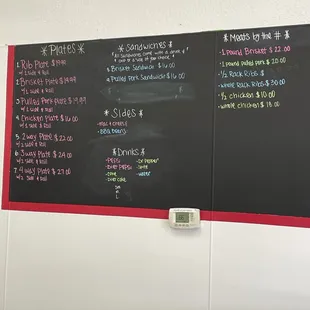 *Plates*
1 Rib Plate $19.99
w/1 side & roll
2 Brisket Plate $19.99
w/1 side & roll
3 Pulled Pork Plate $19.99
w/1 side & roll
4 Chicken Plate $16.00
w/1 side & roll
5 2 way Plate $22.00
w/1 side & roll
6 3way Plate $24.00
w/1 side & roll
7 4way Plate $27.00
w/1 side & roll
*Sandwiches*
All Sandwiches come with a drink &
Brisket Sandwich $16.00
Pulled Pork Sandwich $16.00
*Sides*
Mac & cheese
BBQ Beans
*Drinks*
Pepsi
Diet Pepsi
Coke
Diet Coke
Dr Pepper
Water
*Meats by the #*
1 Pound Brisket $22.00
1 Pound Pulled pork $20.00
1/2 Rack Ribs $
whole Rack Ribs $30.00
1/2 chicken $10.00
whole chicken $18.00